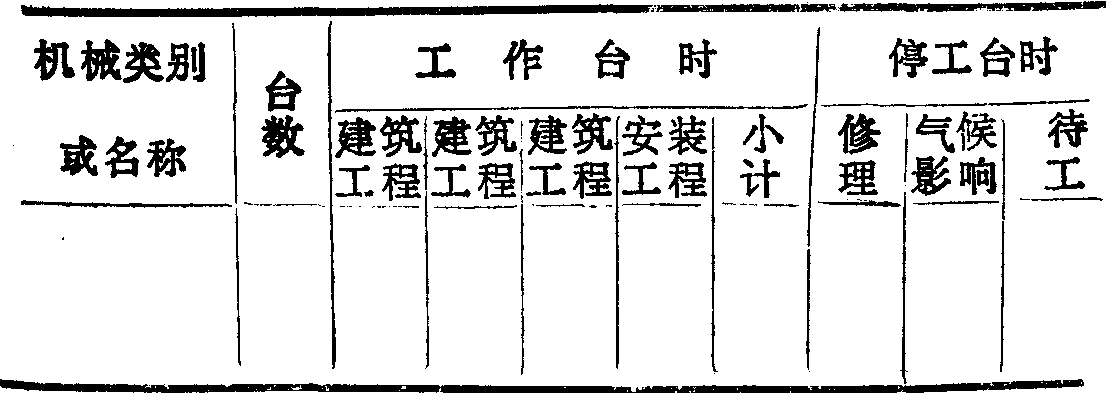 机械类别
或名称
台数
工作台时
停工台时
建筑工程
建筑工程
建筑工程
安装工程
小计
修理
气候影响
待工